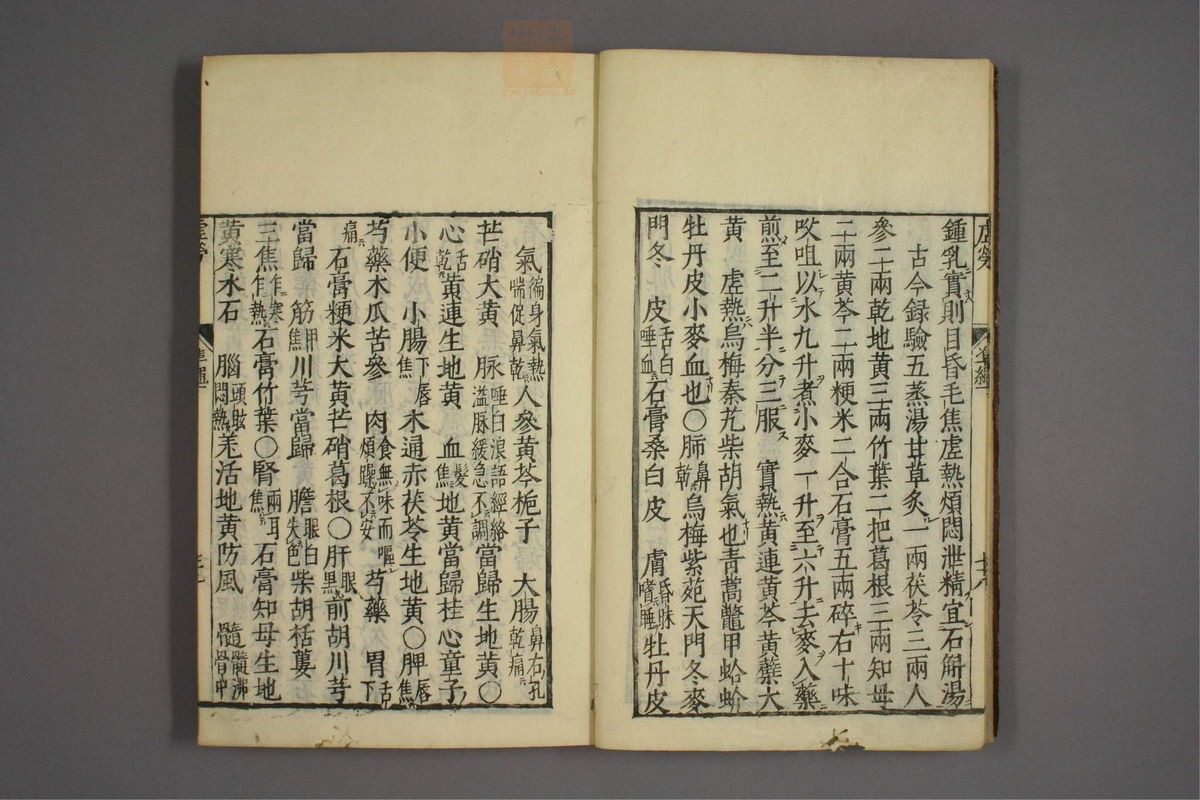 鍾乳實則目昏毛焦虛熱煩悶泄精宜石斛湯
古今錄驗五蒸湯甘草炙一兩茯苓三兩人
參二兩乾地黄三兩竹葉二把葛根三兩知母
二兩黄芩二兩粳米二合石膏五兩碎右十味
㕮咀以水九升煮小麥一升至六升去麥入藥
煎至二升半分三服　實熱黄連黄芩黄蘗大
黄　虛熱烏梅秦艽柴胡氣也青蒿鼈甲蛤蚧
牡丹皮小麥血也〇肺鼻乾烏梅紫苑天門冬麥
門冬　皮舌白唾血石膏桑白皮　膚昏昧嗜睡牡丹皮
氣徧身氣熱喘促鼻乾人參黄芩梔子　大腸鼻右孔乾痛
芒硝大黄　脉唾白浪語經絡溢脉緩急不調當歸生地黄〇
心舌乾黄連生地黄　血髮焦地黄當歸桂心童子
小便　小腸下唇焦木通赤茯苓生地黄〇脾唇焦
芍藥木瓜苦參　肉食無味而嘔煩躁不安芍藥　胃舌下
痛石膏粳米大黄芒硝葛根〇肝眼黑前胡川芎
當歸　筋甲焦川芎當歸　膽眼白失色柴胡栝蔞
三焦乍寒乍熱石膏竹葉〇腎兩耳焦石膏知母生地
黄寒水石　腦頭眩悶熱羌活地黄防風　髓髓沸骨中
虛勞
準繩